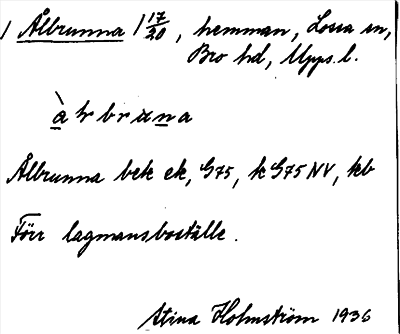 1 Ålbrunna 1 17/20, hemman, Lossa sn,
Bro hd, Upps. l.
Ålbrunna bek ek, G75, k G75 NV, kb
Förr lagmansboställe.
Stina Holmström 1936